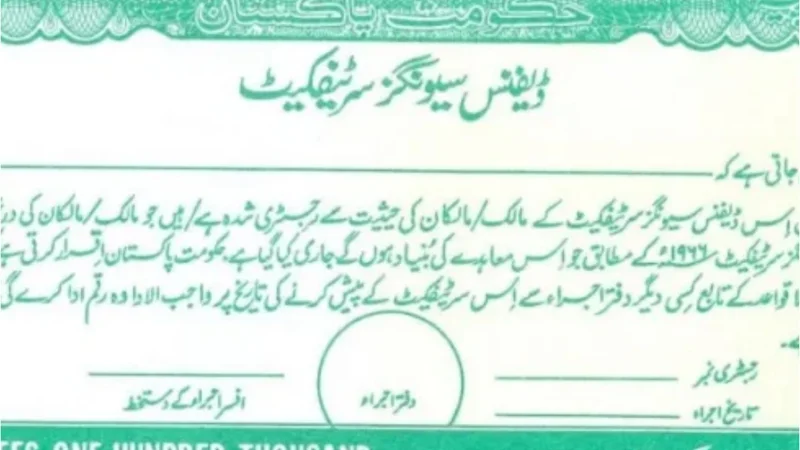 حکومت پاکستان
ڈیفنس سیونگز سرٹیفکیٹ
جاتی ہے کہ
اِس ڈیفنس سیونگز سرٹیفکیٹ کے مالک/مالکان کی حیثیت سے رجسٹری شدہ ہے/ہیں جو مالک/مالکان کی
سرٹیفکیٹ ۱۹۶۶ء کے مطابق جو اِس معاہدے کی بُنیاد ہوں گے جاری کیا گیا ہے۔ حکومت پاکستان اِقرار کرتی ہے
قواعد کے تابع کِسی دیگر دفتر اجراء سے اِس سرٹیفکیٹ کے پیش کرنے کی تاریخ پر واجب الادا وہ رقم ادا کرے گی
رجسٹری نمبر
تاریخ اجراء
دفتر اجراء
افسر اجراء کے دستخط
ONE HUNDRED THOUSAND